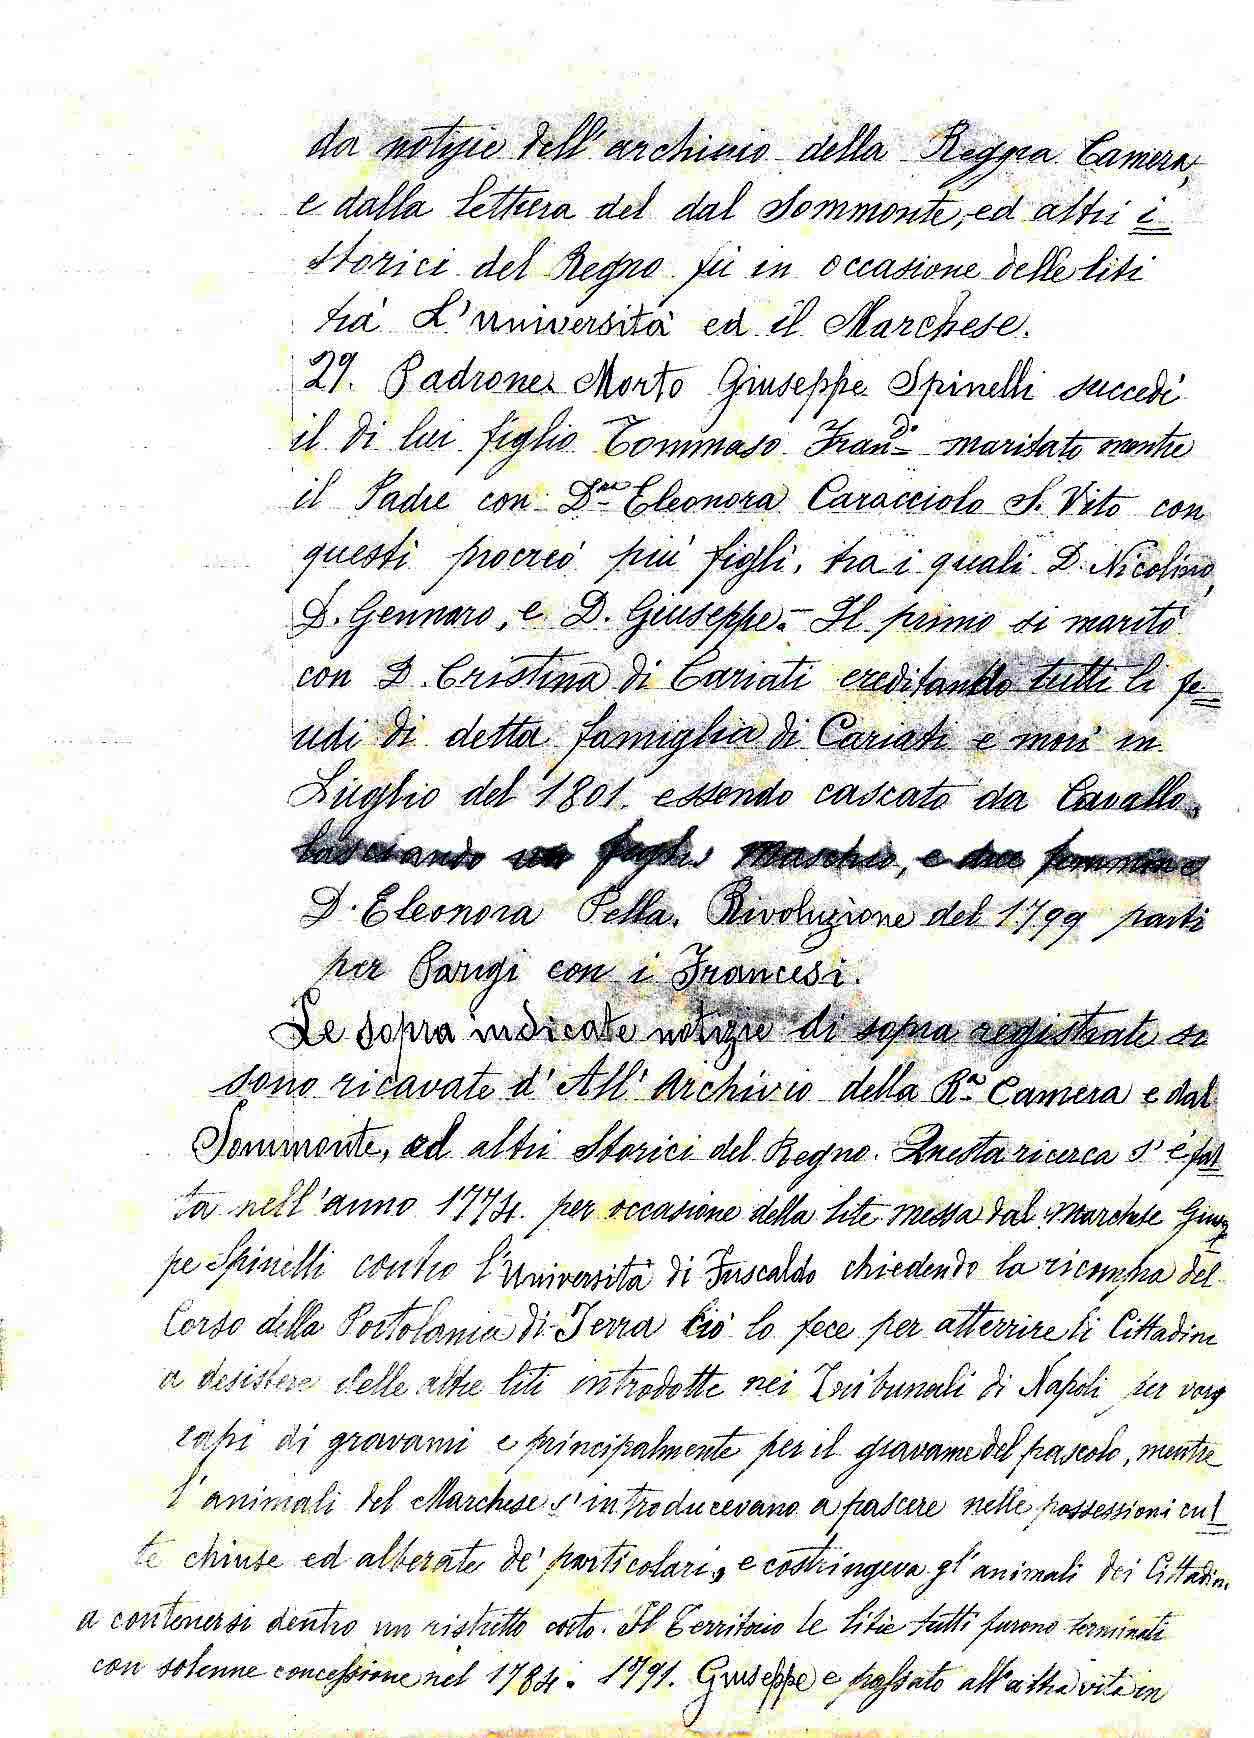 da notizie dell'archivio della Reggia Camera,
e dalla lettura del dal Sommonte, ed altri i
storici del Regno fù in occasione delle liti
trà L'Università ed il Marchese.
29. Padrone. Morto Giuseppe Spinelli succedì
il di lui figlio Tommaso Fran.do maritato mentre
il Padre con D.na Eleonora Caracciolo S. Vito con
questi procreò più figli, tra i quali D. Nicolino,
D. Gennaro, e D. Giuseppe.- Il primo si maritò
con D. Cristina di Cariati ereditando tutti li fe=
udi di detta famiglia di Cariati e morì in
Luglio del 1801. essendo cascato da Cavallo,
lasciando un figlio maschio, e due femmine
D. Eleonora Pella. Rivoluzione del 1799 partì
per Parigi con i Francesi.
Le sopra indicate notizie di sopra registrate si
sono ricavate d'All'Archivio della R.a Camera e dal
Sommonte, ed altri Storici del Regno. Questa ricerca s'è fat
ta nell'anno 1774. per occasione della lite messa dal Marchese Giusep
pe Spinelli contro l'Università di Fuscaldo chiedendo la ricompra del
Corso della Portolania di Terra Ciò lo fece per atterrire li Cittadini
a desistere delle altre liti introdotte nei Tribunali di Napoli per varj
capi di gravami e principalmente per il gravame del pascolo, mentre
l'animali del Marchese s'introducevano a pascere nelle possessioni cul
te chiuse ed alberate de' particolari, e costringeva gl'animali dei Cittadini
a contenersi dentro un ristretto corto. Il Territorio le litie tutti furono terminati
con solenne concessione nel 1784. 1791. Giuseppe e passato all'altra vita in